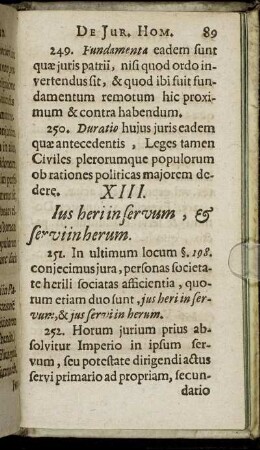 De Jur. Hom. 89
249. Fundamenta eadem sunt
quæ juris patrii, nisi quod ordo in
vertendus sit, & quod ibi fuit fun-
damentum remotum hic proxi-
mum & contra habendum.
250. Duratio hujus juris eadem
quæ antecedentis, Leges tamen
Civiles plerorumque populorum
ob rationes politicas majorem de-
dere.
XIII.
Ius heri in servum, &
servi in herum.
251. In ultimum locum §. 198.
conjecimus jura, personas societa-
te herili sociatas afficientia, quo-
rum etiam duo sunt, jus heri in ser-
vum, & jus servi in herum.
252. Horum jurium prius ab-
solvitur Imperio in ipsum ser-
vum, seu potestate dirigendi actus
servi primario ad propriam, secun-
datio